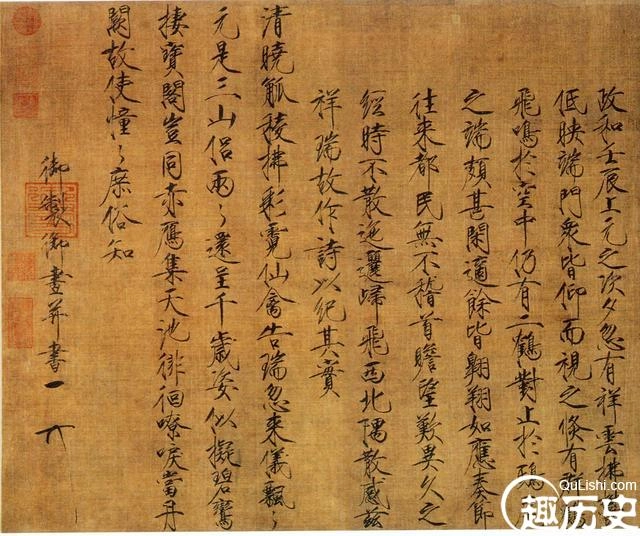 政和壬辰上元之次夕忽有祥雲拂鬱
低映端門衆皆仰而視之倏有群
飛鳴於空中仍有二鶴對止於鴟
之端頗甚閑適餘皆翱翔如應奏節
往來都民無不稽首瞻望歎異久之
經時不散迤邐歸飛西北隅散感茲
祥瑞故作詩以紀其實
清曉觚稜拂彩霓仙禽告瑞忽來儀飄〻
元是三山侶兩〻還呈千歲姿似擬碧鸞
棲寶閣豈同赤鴈集天池徘徊嘹唳當丹
闕故使憧〻庶俗知
御製御畫并書
QuLishi.com
趣历史